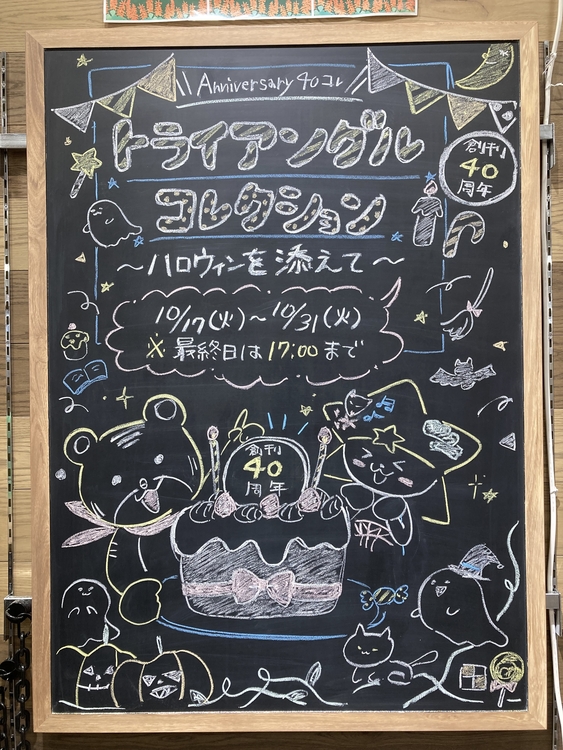 Anniversary 40コレ
トライアングル
コレクション
創刊
40
周年
~ハロウィンを添えて~
10/17(火)~10/31(火)
※最終日は17:00まで
創刊
40
周年